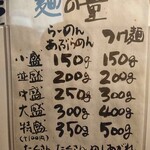 麺の量
らーめん
あぶらめん
つけ麺
小盛 150g 150g
並盛 200g 200g
中盛 250g 300g
大盛 300g 400g
特盛 350g 500g
(+100円)